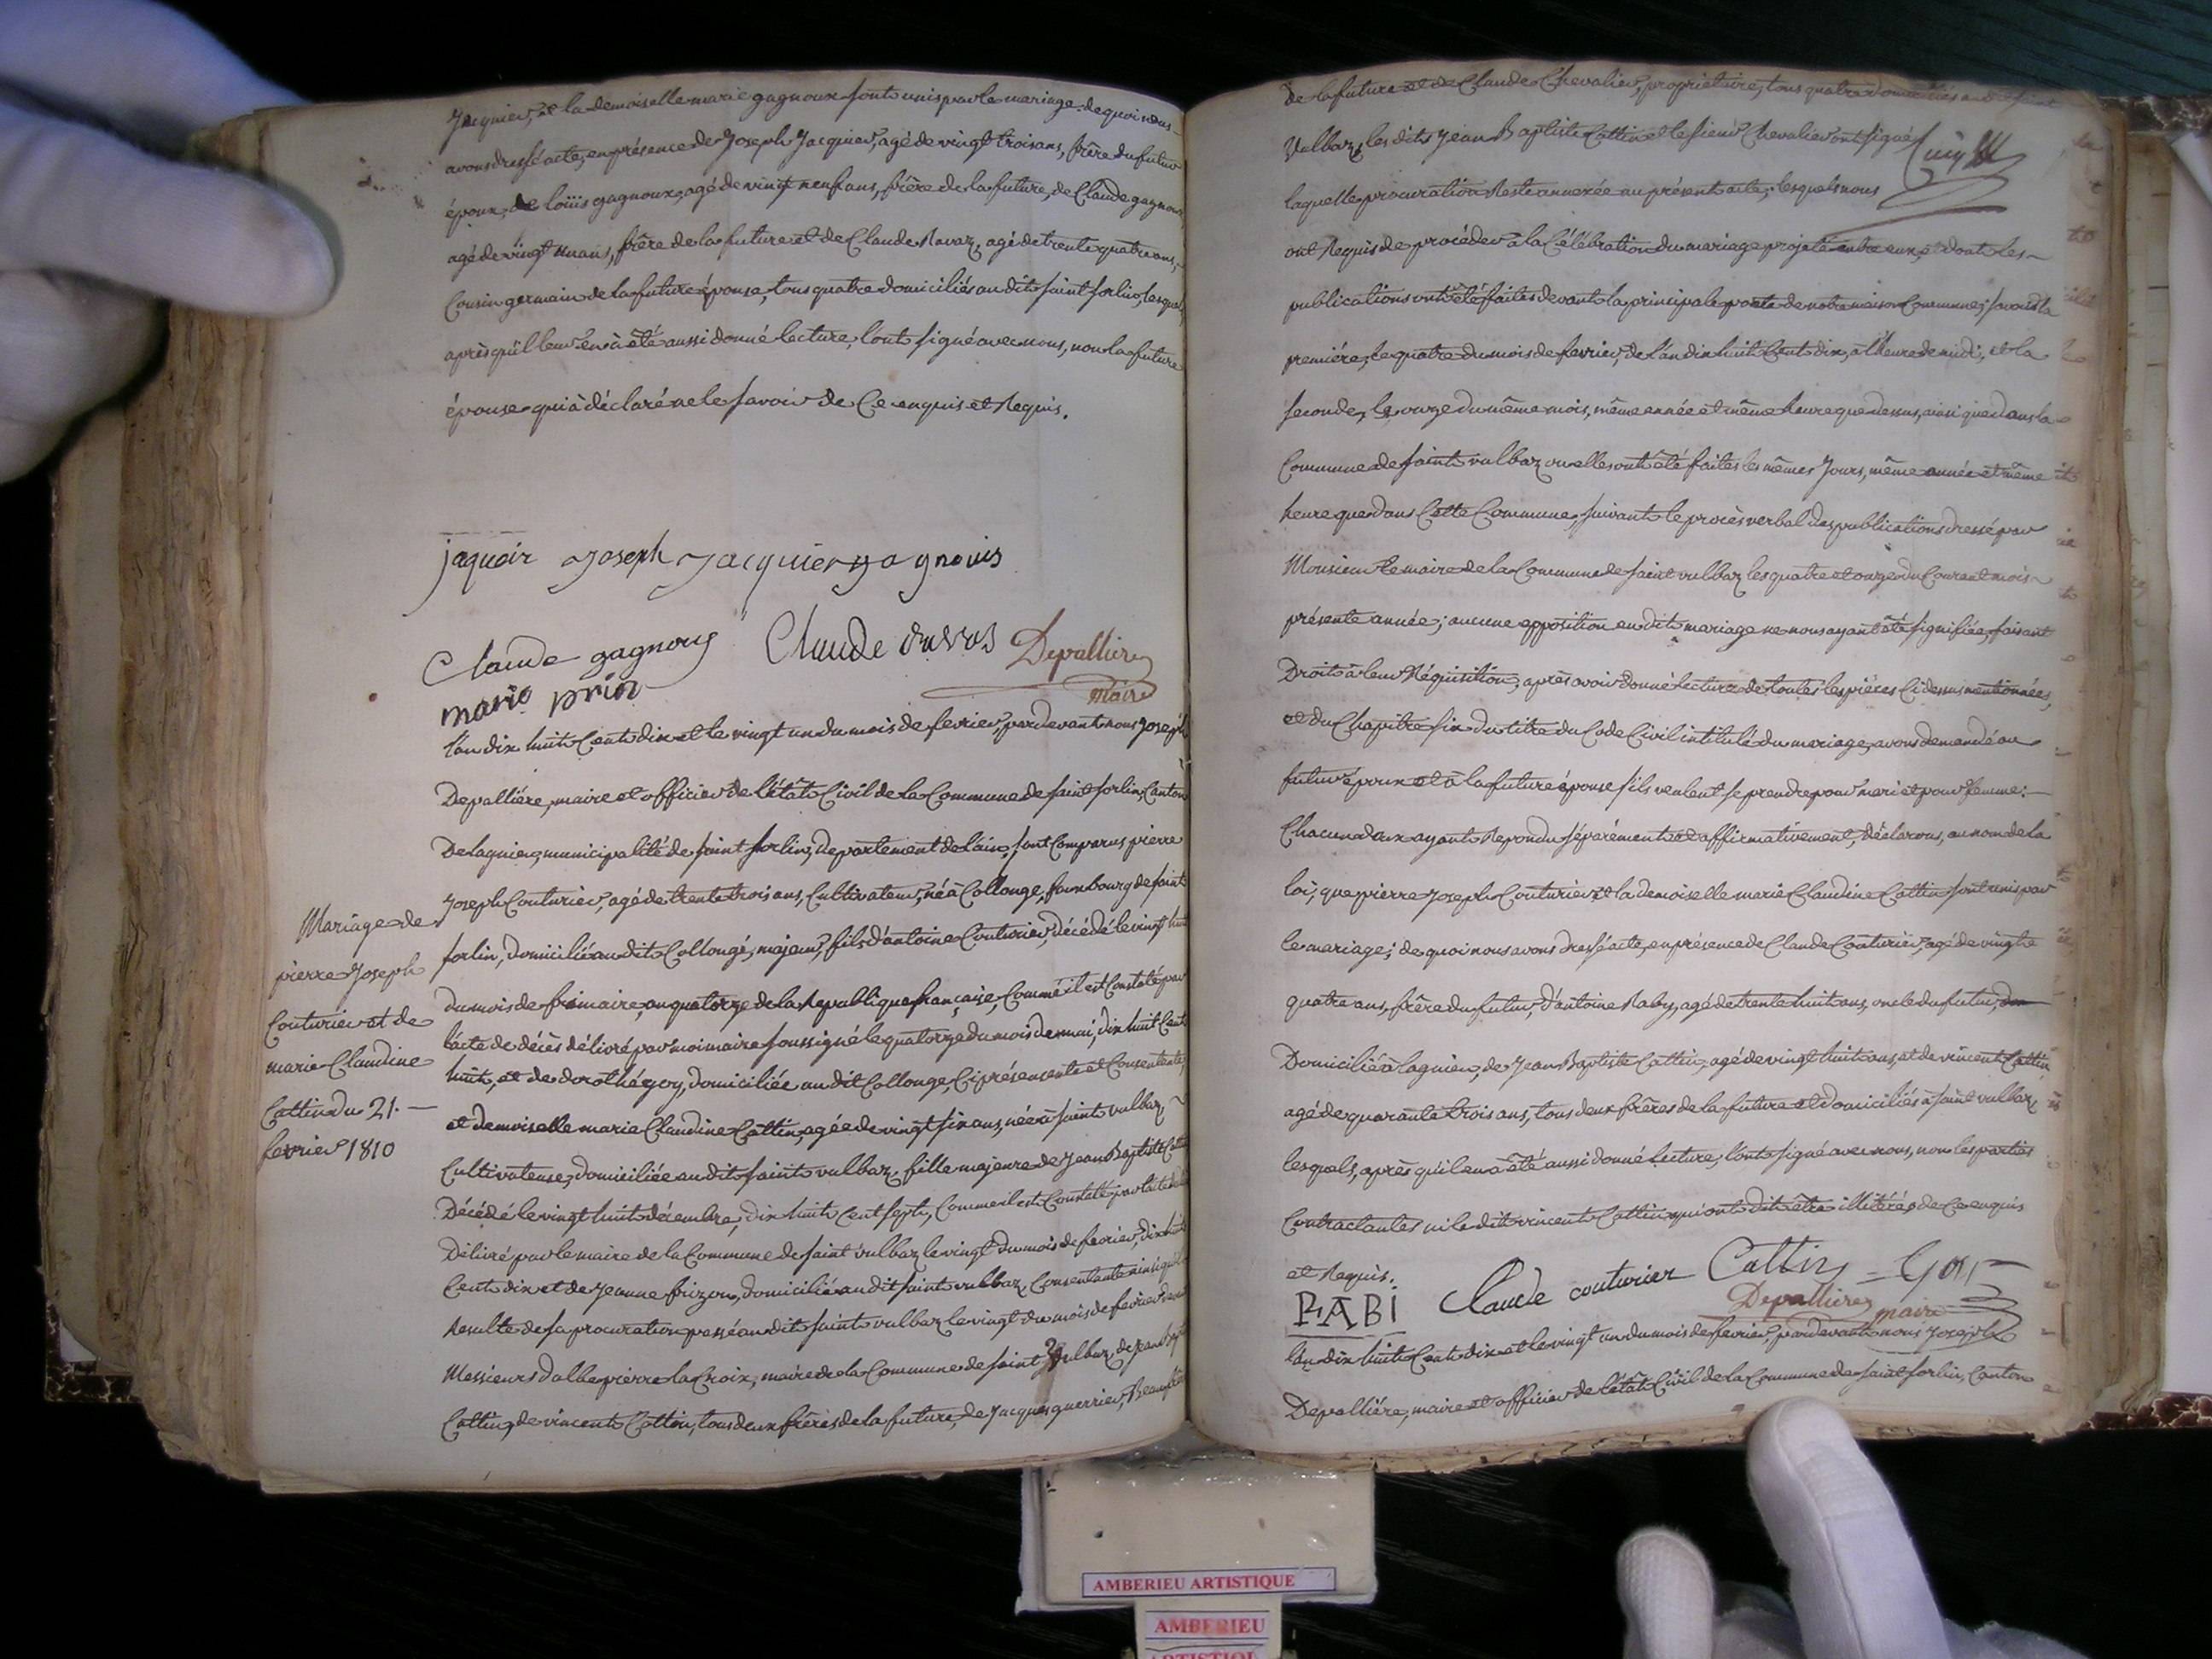 Jacquier, et la demoiselle marie gagnoux sont unis par le mariage. de quoi nous
avons dressé acte, en présence de Joseph Jacquier, agé de vingt trois ans, frère du futur
époux, de loüis gagnoux, agé de vingt neuf ans, frère de la future, de Claude gagnoux
agé de vingt un ans, frère de la future et de Claude Ravaz, agé de trente quatre ans,
Cousin germain de la future épouse, tous quatre domiciliés au dit saint sorlin, lesquels,
après qu'il leur en à été aussi donné lecture, l'ont signé avec nous, non la future
épouse qui à déclaré ne le savoir de Ce enquis et Requis.
jaquier Joseph Jacquier gagnouis
Claude gagnoux Claude Depallière
maire
marie prin
l'an dix huit Cent dix et le vingt un du mois de fevrier, par devant nous Joseph
Depallière, maire et officier de l'état Civil de la Commune de saint sorlin, Canton
De lagnieu, municipalité de saint sorlin, departement de l'ain, sont Comparus pierre
Joseph Couturier, agé de trente trois ans, Cultivateur, né à Collonge, fauxbourg de saint
sorlin, domicilié au dit Collonge, majeur, fils d'antoine Couturier, décédé le vingt huit
du mois de frimaire, an quatorze de la Republique française, Comme il est Constaté par
l'acte de décès délivré par moi maire soussigné le quatorze du mois de mai, dix huit Cent
huit, et de dorothé goy, domiciliée au dit Collonge, Ciprésente et Consentente,
et demoiselle marie Claudine Cattin, agée de vingt six ans, née à saint vulbaz,
Cultivateuse, domiciliée au dit saint vulbaz, fille majeure de Jean Baptiste Cattin
Décédé le vingt huit décembre, dix huit Cent sept, Comme il est Constaté par l'acte
Délivré par le maire de la Commune de saint vulbaz le vingt du mois de fevrier, dix huit
Cent dix et de Jeanne frizon, domiciliée au dit saint vulbaz, Consentante ainsi qu'il
Resulte de sa procuration passé au dit saint vulbaz le vingt du mois de fevrier devant
Messieurs dalbe pierre la Croix, maire de la Commune de saint Vulbaz, de Jean Bapt
Cattin, de vincent Cattin, tous deux frères de la future, de Jacques guerrier, Beaufrère
Mariage de
pierre Joseph
Couturier et de
marie Claudine
Cattin du 21.
fevrier 1810
De la future et de Claude Chevalier, proprietaire, tous quatre domiciliés au dit saint
Vulbaz, les dits Jean Baptiste Cattin et le sieur Chevalier ont signé
laquelle procuration Reste annexée au présent acte; lesquels nous
ont Requis de procéder à la Célébration du mariage projeté entre eux, et dont les
publications ont été faites devant la principale porte de notre maison Commune; savoir la
première, le quatre du mois de fevrier, de l'an dix huit Cent dix, à l'heure de midi, et la
seconde, le onze du même mois, même année et même heure que dessus, ainsi que dans la
Commune de saint vulbaz ou elles ont été faites les mêmes Jours, même année et même
heure que dans Cette Commune, suivant le procès verbal des publications dressé par
Monsieur le maire de la Commune de saint vulbaz les quatre et onze du Courant mois
présente année; aucune opposition au dit mariage ne nous ayant été signifiée, faisant
Droit à leur Réquisition, après avoir donné lecture de toutes les pièces Ci dessus mentionnées,
et du Chapitre six du titre du Code Civil intitulé du mariage, avons demandé au
futur époux et à la future épouse s'ils veulent se prendre pour mari et pour femme:
Chacun d'eux ayant Repondu séparément et affirmativement, déclarons, au nom de la
loi, que pierre Joseph Couturier et la demoiselle marie Claudine Cattin sont unis par
le mariage; de quoi nous avons dressé acte, en présence de Claude Couturier, agé de vingt
quatre ans, frère du futur, d'antoine Raby, agé de trente huit ans, oncle du futur,
Domicilié à lagnieu, de Jean Baptiste Cattin, agé de vingt huit ans, et de vincent Cattin
agé de quarante trois ans, tous deux frères de la future et domiciliés à saint vulbaz,
lesquels, après qu'il en à été aussi donné lecture, l'ont signé avec nous, non les parties
Contractantes ni le dit vincent Cattin qui ont dit être illitérés de Ce enquis
et Requis.
RABI Claude couturier Cattin
Depallière maire
l'an dix huit Cent dix et le vingt un du mois de fevrier, par devant nous Joseph
Depallière, maire et officier de l'état Civil de la Commune de saint sorlin, Canton
AMBERIEU ARTISTIQUE
AMBERIEU
ARTISTIQUE